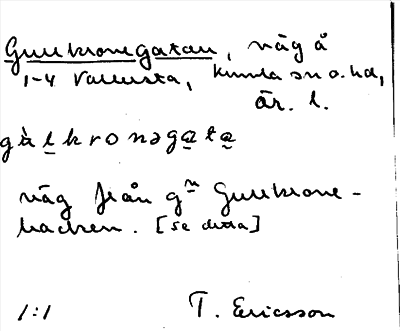 Gullkronegatan, väg å
1-4 Vallersta, Kumla sn o. hd,
Är. l.
gàlkronəgata
väg från gn Gullkrone-
backen. [se detta]
1:1 T. Ericsson